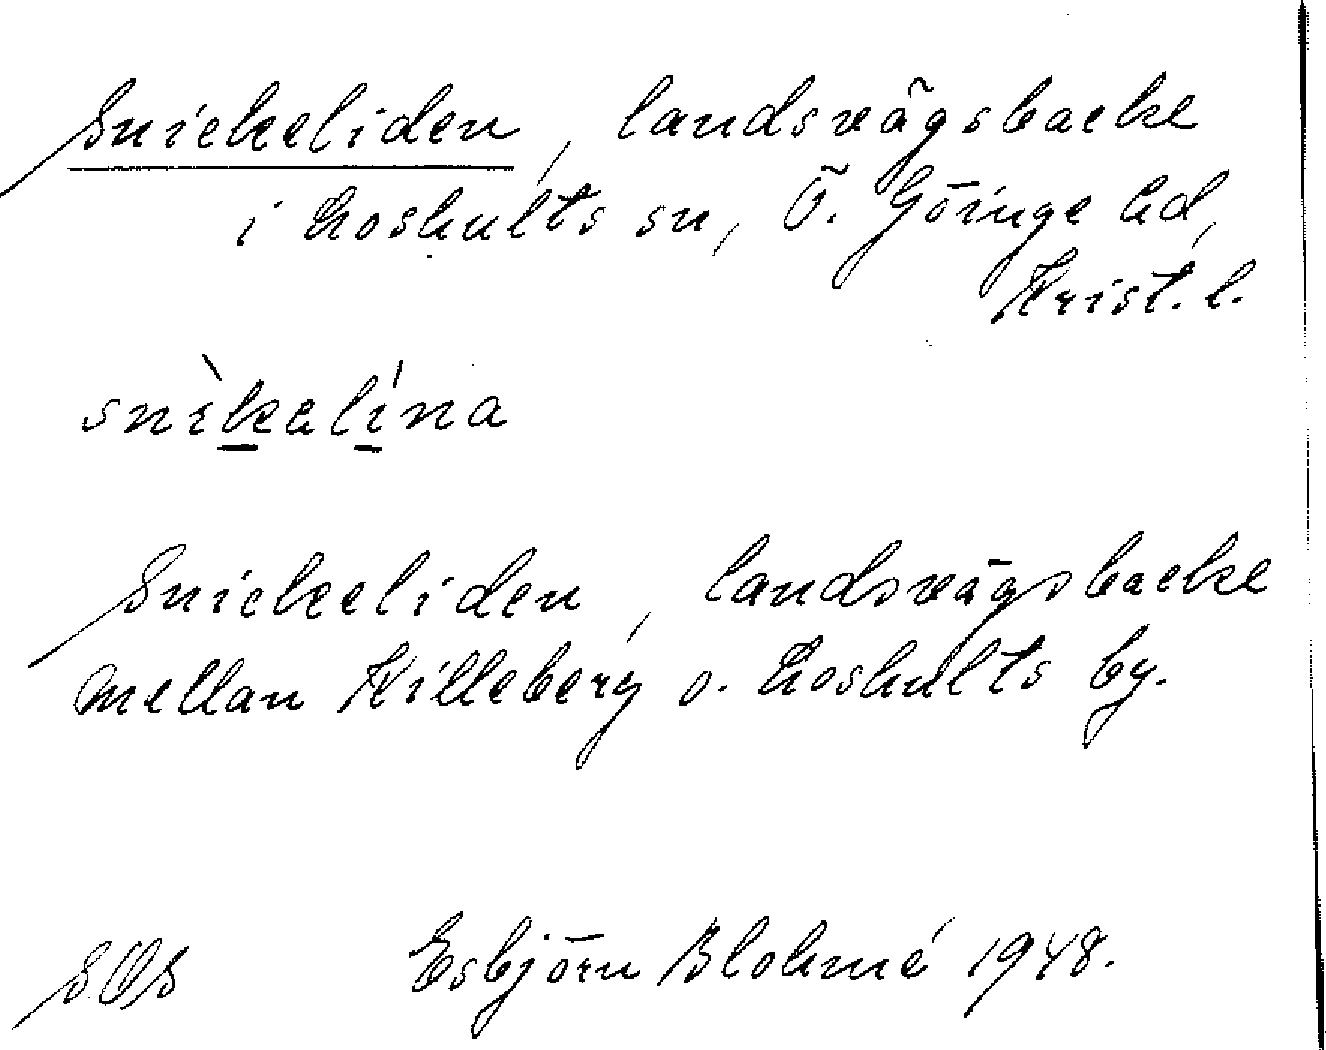 Snickeliden, landsvägsbacke
i Loshults sn, Ö. Göinge hd,
Krist. l.
snìkalína
Snickeliden, landsvägsbacke
mellan Killeberg o. Loshults by.
SOS Esbjörn Blohmé 1948.